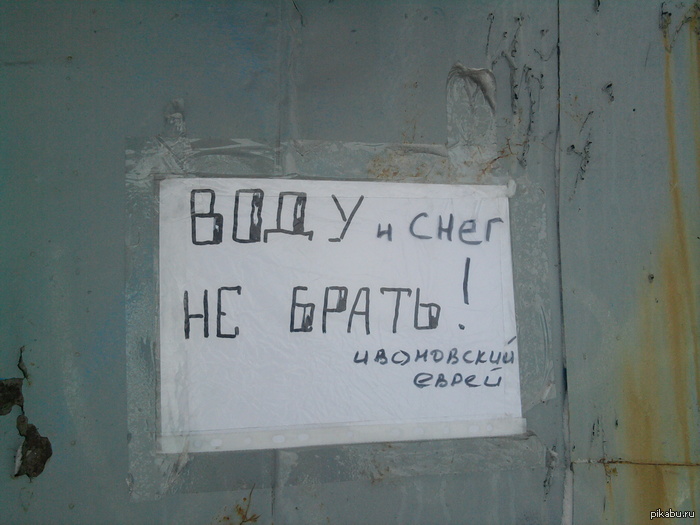 ВОДУ и СНЕГ
НЕ БРАТЬ!
ИВАНОВСКИЙ
ЕВРЕЙ
pikabu.ru